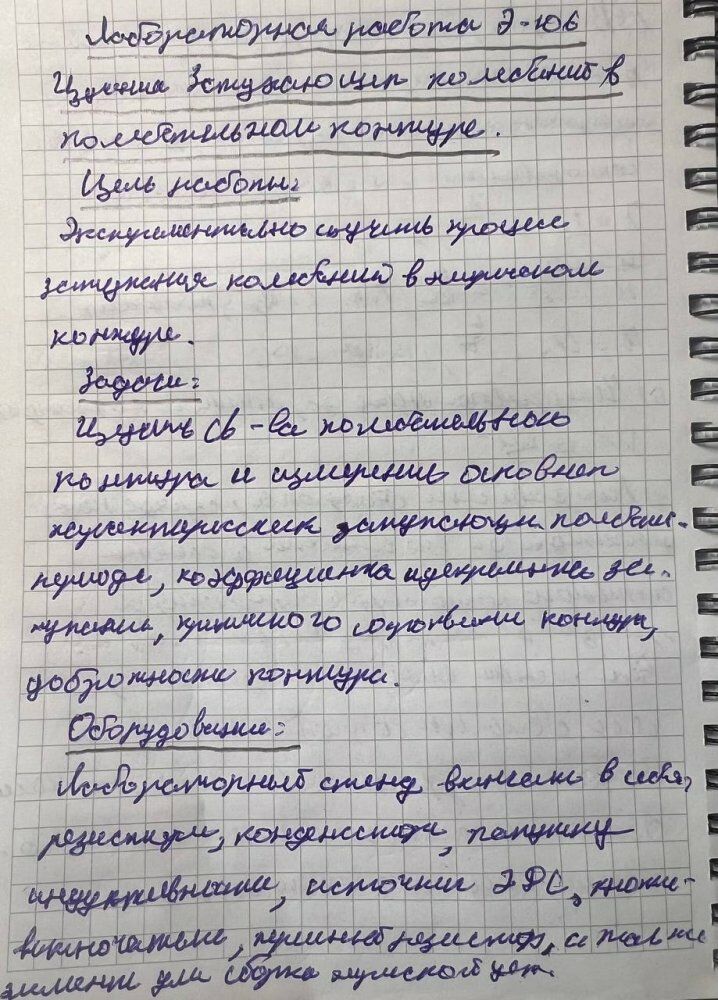 Лабораторная работа Э-10б
Изучение затухающих колебаний в
колебательном контуре.
Цель работы:
Экспериментально изучить процесс
затухания колебаний в
контуре.
Задачи:
Изучить св-ва колебательного
контура и измерение основных
характеристик затухающих колебаний
периода, коэффициента и декремента за-
тухания, критического сопротивления контура,
добротности контура.
Оборудование:
Лабораторный стенд включает в себя,
резисторы, конденсатор, катушку
индуктивности, источник ЭДС,
выключатель, резистор, а также
элементы для сборки цепи.